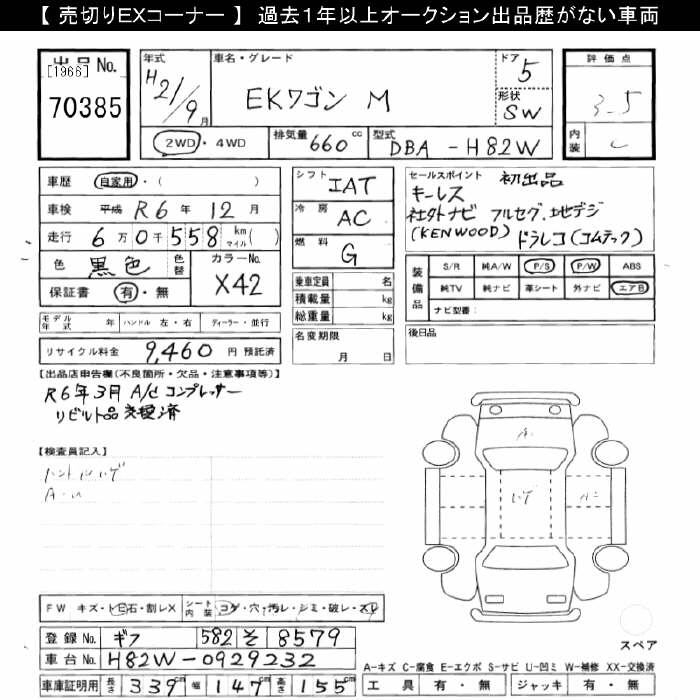 【 売切りEXコーナー 】 過去1年以上オークション出品歴がない車両
出品 No.
[1966]
70385
年式
H21/9月
車名・グレード
EKワゴン M
ドア
5
形状
SW
2WD・4WD
排気量 660 cc
型式 DBA - H82W
評価点
3.5
内装
C
車歴 自家用・( )
車検 平成 R6 年 12 月
走行 6万0千558 km マイル( )
色 黒色 色替
カラーNo. X42
保証書 有・無
シフト IAT
冷房 AC
燃料 G
乗車定員 名
積載量 kg
総重量 kg
セールスポイント 初出品
キーレス
社外ナビ フルセグ、地デジ
(KENWOOD) ドラレコ(コムテック)
装備品
S/R 純A/W P/S P/W ABS
純TV 純ナビ 革シート 外ナビ エアB
ナビ型番:
モデル年式 年 ハンドル 左・右 ディーラー・並行
リサイクル料金 9,460 円 預託済
名変期限
月 日
後日品
【出品店申告欄(不良箇所・欠品・注意事項等)】
R6年3月 A/C コンプレッサー
リビルト品 交換済
【検査員記入】
ハンドルハゲ
A-U
A-
ハゲ
A-
FW キズ・トビ石・割レX
シート内装 コゲ・穴・汚レ・シミ・破レ・スレ
登録 No. ギフ 582 そ 8579
車台 No. H82W-0929232
車庫証明用 長さ 339 cm 幅 147 cm 高さ 155 cm
スペア
A-キズ C-腐食 E-エクボ S-サビ U-凹ミ W-補修 XX-交換済
工具 有・無 ジャッキ 有・無